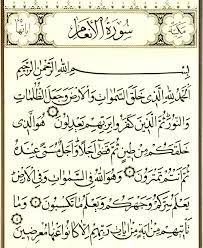 سُورَةُ الْأَنْعَامِ
بِسْمِ اللهِ الرَّحْمٰنِ الرَّحِيمِ
اَلْحَمْدُ لِلّٰهِ الَّذِي خَلَقَ السَّمٰوَاتِ وَالْأَرْضَ وَجَعَلَ الظُّلُمَاتِ
وَالنُّورَ ثُمَّ الَّذِينَ كَفَرُوا بِرَبِّهِمْ يَعْدِلُونَ ۝ هُوَ الَّذِي
خَلَقَكُمْ مِنْ طِينٍ ثُمَّ قَضٰى أَجَلًا وَأَجَلٌ مُسَمًّى عِنْدَهُ
ثُمَّ أَنْتُمْ تَمْتَرُونَ ۝ وَهُوَ اللهُ فِي السَّمٰوَاتِ وَفِي الْأَرْضِ
يَعْلَمُ سِرَّكُمْ وَجَهْرَكُمْ وَيَعْلَمُ مَا تَكْسِبُونَ ۝ وَمَا
تَأْتِيهِمْ مِنْ اٰيَةٍ مِنْ اٰيَاتِ رَبِّهِمْ إِلَّا كَانُوا عَنْهَا مُعْرِضِينَ